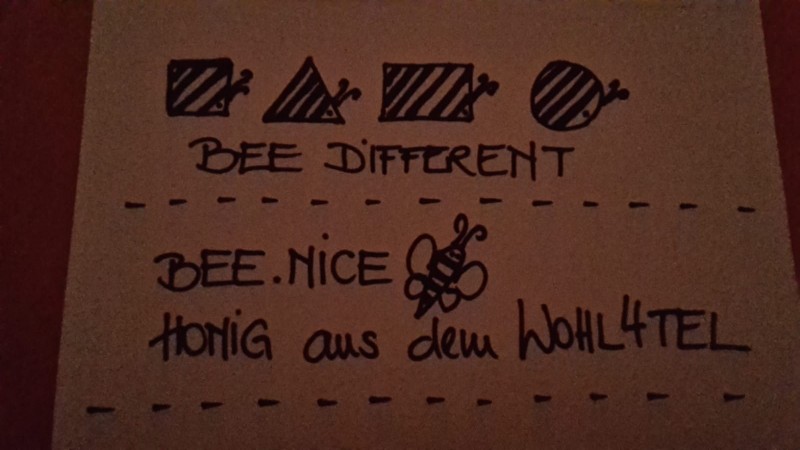 BEE DiFFERENT
BEE.NiCE
HONiG aus dem WOHL4TEL